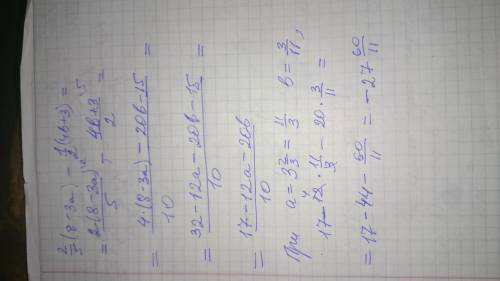 2/5(8-3a) - 1/2(4b+3) =
= 2·(8-3a)\2 / 5 - 4b+3\5 / 2 =
= 4·(8-3a) - 20b-15 / 10 =
= 32-12a-20b-15 / 10 =
= 17-12a-20b / 10
При a = 3 2/3 = 11/3 b = 3/11,
17-12·11/3 - 20·3/11 =
= 17-44-60/11 = -27 60/11